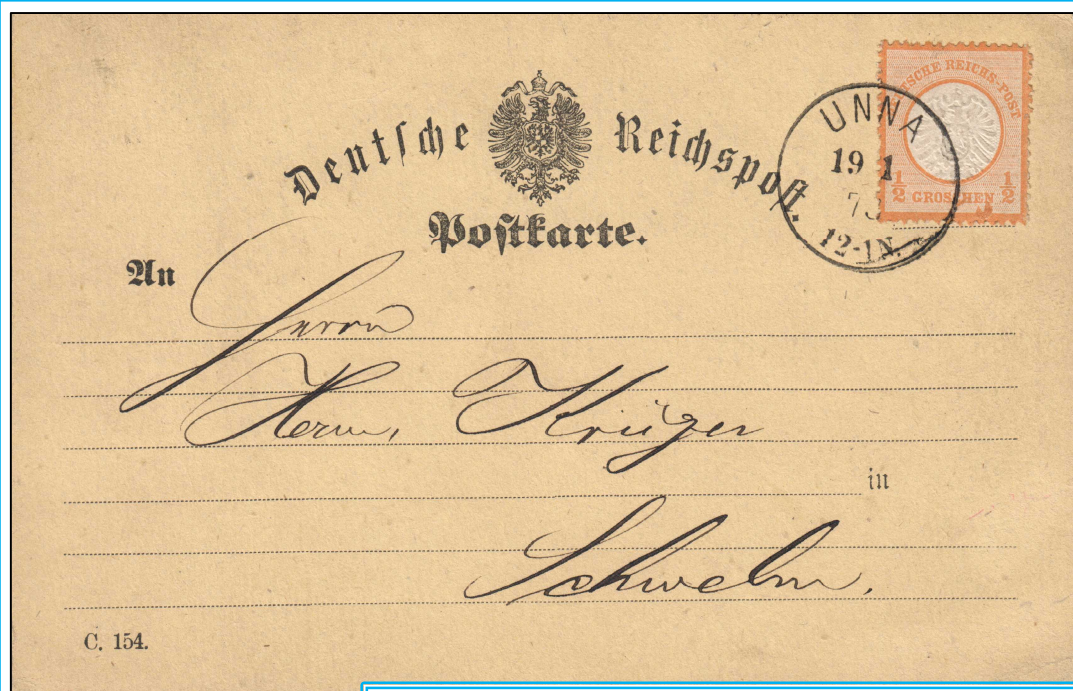 Deutsche Reichspost.
Postkarte.
UNNA
19 1
12-1N.
DEUTSCHE REICHS-POST
1/2 GROSCHEN 1/2
An
Herrn
Herm. Krüger
in
Schwelm.
C. 154.